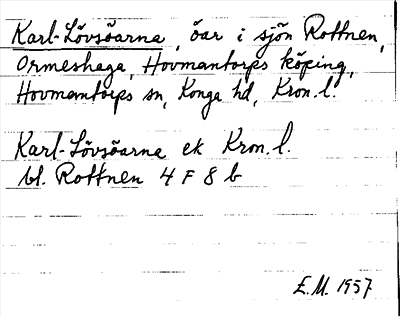 Karl-Lövsöarna, öar i sjön Rottnen,
Ormeshaga, Hovmantorps köping,
Hovmantorps sn, Konga hd, Kron. l.
Karl-Lövsöarna ek Kron. l.
bl. Rottnen 4 F 8 b
E.M. 1957